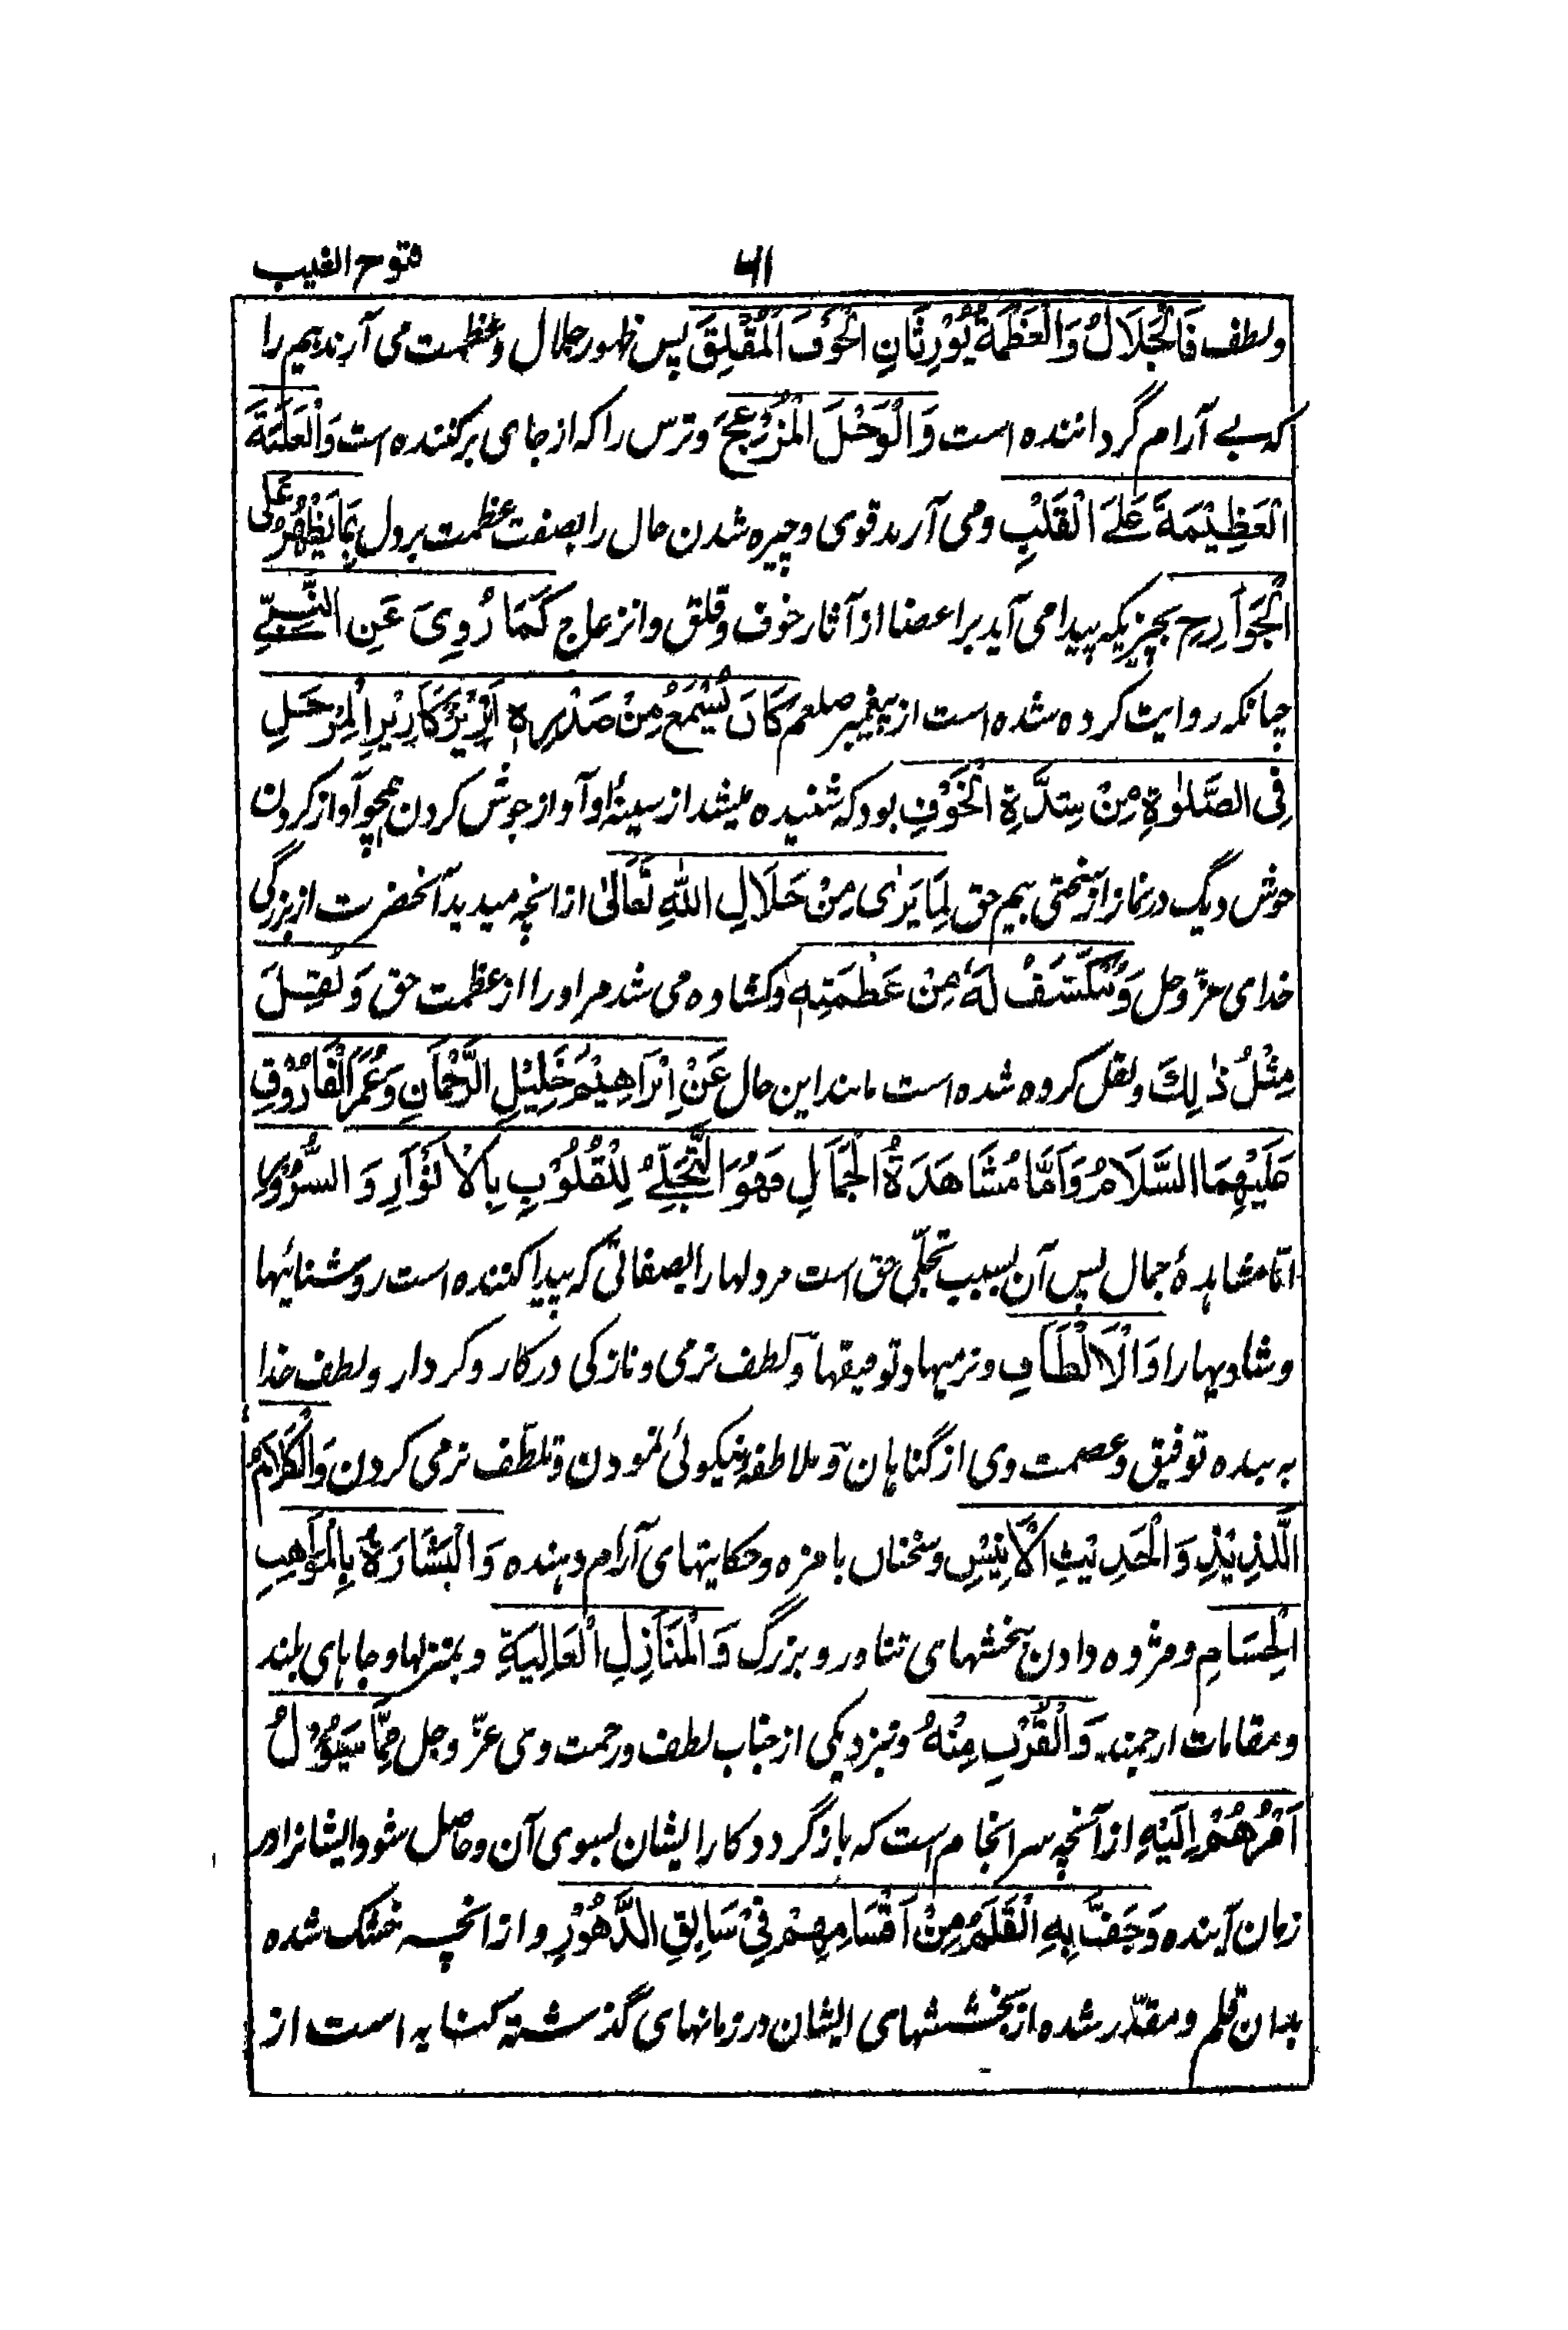 فتوح الغیب
۶۱
ولطف فَالْجَلَالُ وَالْعَظَمَةُ يُوْرِثَانِ الْخَوْفَ الْمُقْلِقَ پس ظہور جلال وعظمت می آرند بیم را
کہ بے آرام گردانندہ است وَالْوَجْلَ الْمُزْعِجَ وترس را کہ از جای برکنندہ است وَالْغَلَبَةَ
الْعَظِيْمَةَ عَلَى الْقَلْبِ ومی آرند قوی وچیرہ شدن حال را بصفت عظمت بر دل بِمَا يَظْهَرُ عَلَى
الْجَوَارِحِ بچیزیکہ پیدا می آید بر اعضا از آثار خوف وقلق وانزعاج كَمَا رُوِيَ عَنِ النَّبِيِّ
چنانکہ روایت کردہ شدہ است از پیغمبر صلعم كَانَ يُسْمَعُ مِنْ صَدْرِهٖ اَزِيْزٌ كَاَزِيْزِ الْمِرْجَلِ
فِى الصَّلٰوةِ مِنْ شِدَّةِ الْخَوْفِ بود کہ شنیدہ میشد از سینۂ او آواز جوش کردن ہمچو آواز کردن
جوش دیگ در نماز از سختی بیم حق لِمَا يَرٰى مِنْ جَلَالِ اللّٰهِ تَعَالٰى از انچہ میدید آنحضرت از بزرگی
خدای عزّ وجل وَيُنْكَشَفُ لَهٗ مِنْ عَظَمَتِهٖ وکشادہ می شد مر اورا از عظمت حق وَنُقِلَ
مِثْلُ ذٰلِكَ ونقل کردہ شدہ است مانند این حال عَنْ اِبْرَاهِيْمَ خَلِيْلِ الرَّحْمٰنِ وَعُمَرَ الْفَارُوْقِ
عَلَيْهِمَا السَّلَامُ وَاَمَّا مُشَاهَدَةُ الْجَمَالِ فَهُوَ التَّجَلِّيْ لِلْقُلُوْبِ بِالْاَنْوَارِ وَالسُّرُوْرِ
امّا مشاہدۂ جمال پس آن بسبب تجلّی حق است مر دلہا را بصفاتی کہ پیدا کنندہ است روشنائیہا
وشادیہا را وَالْاَلْطَافِ ونرمیہا وتوفیقہا ولطف نرمی ونازکی در کار وکردار ولطف خدا
بہ بندہ توفیق وعصمت وی از گناہان وملاطفہ نیکوئی نمودن وتلطّف نرمی کردن وَالْكَلَامِ
اللَّذِيْذِ وَالْحَدِيْثِ الْاَنِيْسِ وسخنان بامزہ وحکایتہای آرام دہندہ وَالْبَشَارَةِ بِالْمَوَاهِبِ
الْجِسَامِ ومژدہ دادن بخششہای تناور وبزرگ وَالْمَنَازِلِ الْعَالِيَةِ وبمنزلہا وجاہای بلند
ومقامات ارجمند وَالْقُرْبِ مِنْهُ ونزدیکی از جناب لطف ورحمت وی عزّ وجل مِمَّا سَيَؤُوْلُ
اَمْرُهُمْ اِلَيْهِ از آنچہ سرانجام است کہ باز گردد کار ایشان بسوی آن وحاصل شود ایشانرا در
زمان آیندہ وَجَفَّ بِهِ الْقَلَمُ مِنْ اَقْسَامِهِمْ فِيْ سَابِقِ الدُّهُوْرِ واز انچہ خشک شدہ
بدان قلم ومقدّر شدہ از بخششہای ایشان در زمانہای گذشتہ کنایہ است از